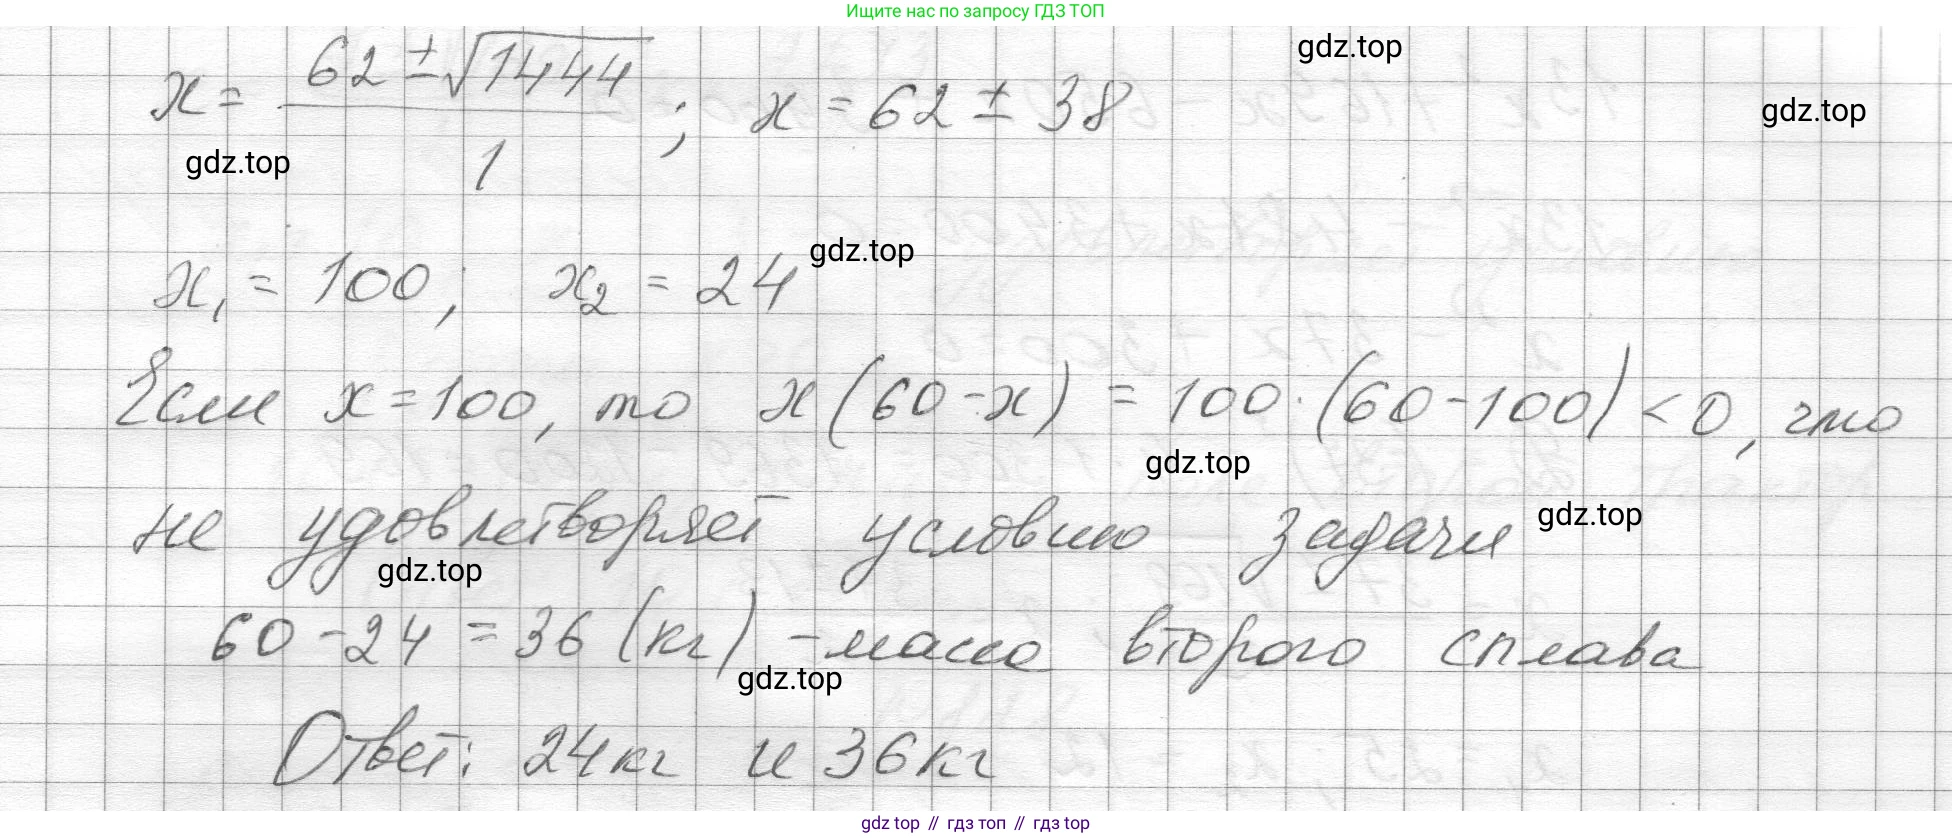 Ищите нас по запросу ГДЗ ТОП
gdz.top
x = (62 ± √1444) / 1 ; x = 62 ± 38
gdz.top
gdz.top
x₁ = 100; x₂ = 24
gdz.top
Если x = 100, то x(60-x) = 100·(60-100) < 0, что
gdz.top
не удовлетворяет условию задачи
gdz.top
gdz.top
60 - 24 = 36 (кг) - масса второго сплава
gdz.top
Ответ: 24 кг и 36 кг
gdz top // гдз топ // гдз top